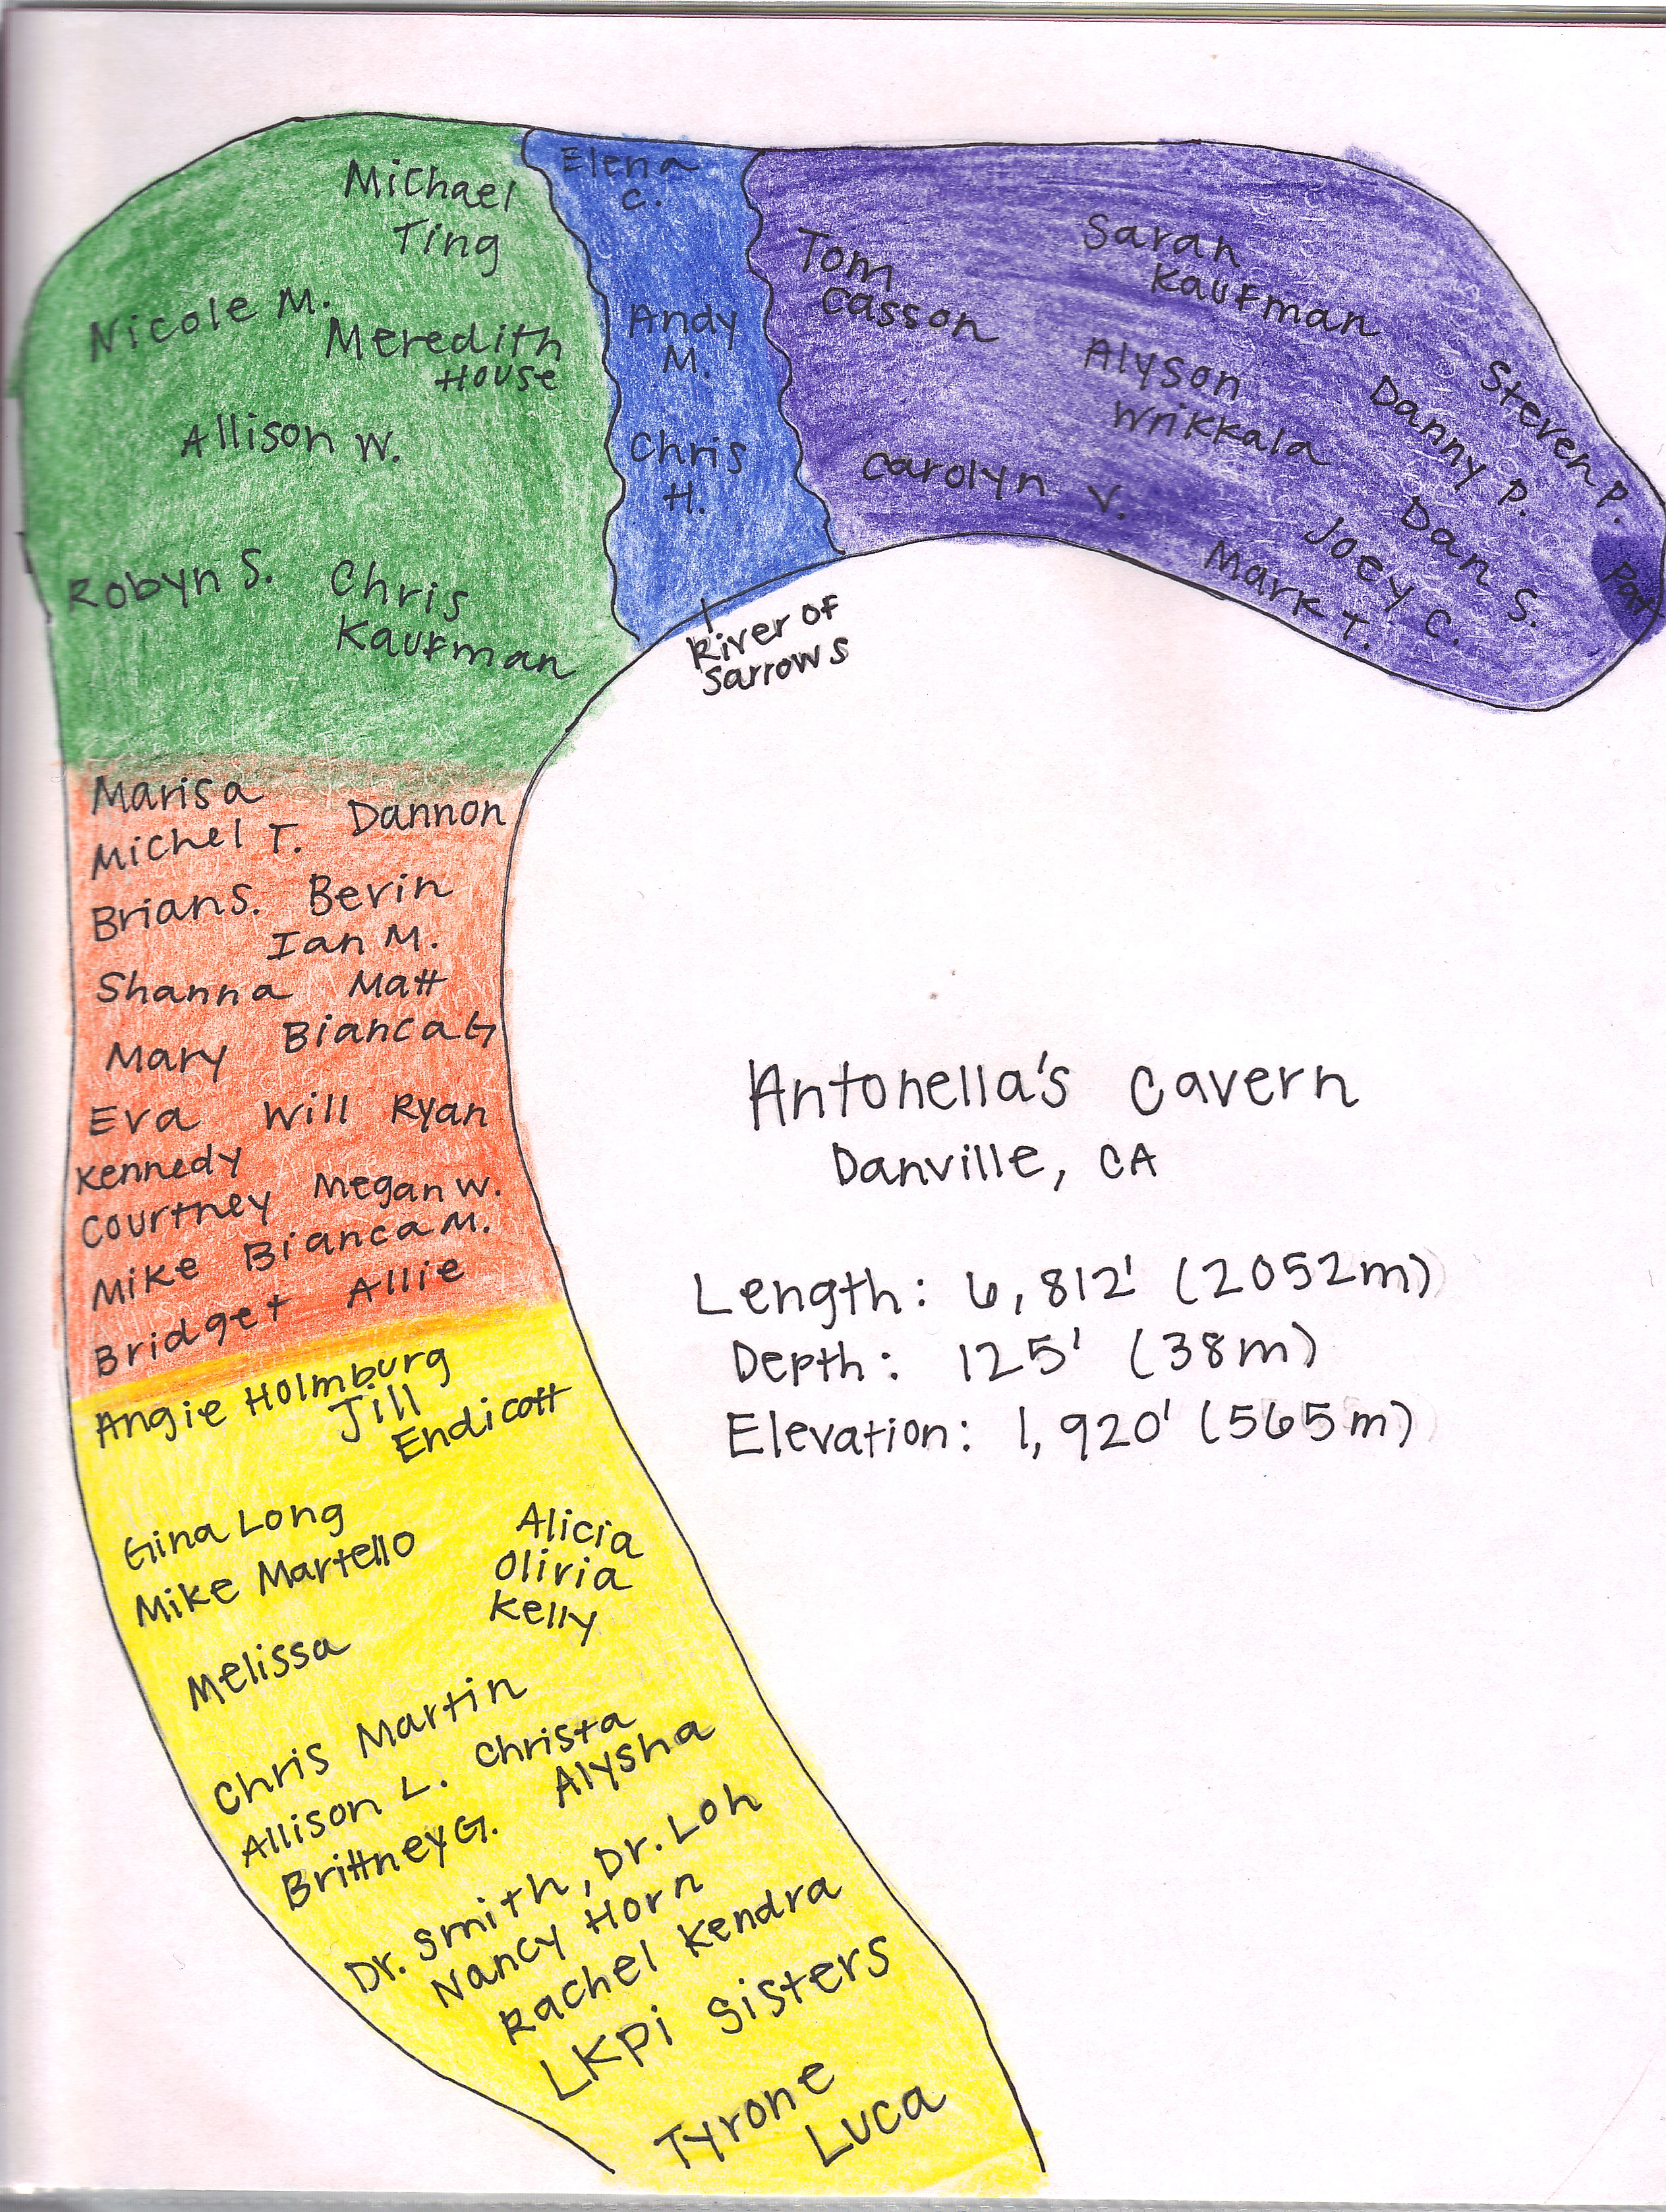 Michael
Ting
Nicole M.
Meredith
House
Allison W.
Robyn S.
Chris
Kaufman
Elena
C.
Andy
M.
Chris
H.
River of
Sarrows
Tom
Casson
Sarah
Kaufman
Alyson
Wrikkala
Carolyn V.
Steven P.
Danny P.
Dan S.
Joey C.
Mark T.
Pat
Marisa
Michel T. Dannon
Brian S. Bevin
Ian M.
Shanna Matt
Mary Bianca G
Eva Will Ryan
Kennedy
Courtney Megan W.
Mike Bianca M.
Bridget Allie
Angie Holmburg
Jill
Endicott
Gina Long
Mike Martello
Alicia
Olivia
Kelly
Melissa
Chris Martin
Allison L. Christa
Brittney G. Alysha
Dr. Smith, Dr. Loh
Nancy Horn
Rachel Kendra
LKPi Sisters
Tyrone
Luca
Antonella's Cavern
Danville, CA
Length: 6,812' (2052m)
Depth: 125' (38m)
Elevation: 1,920' (565m)